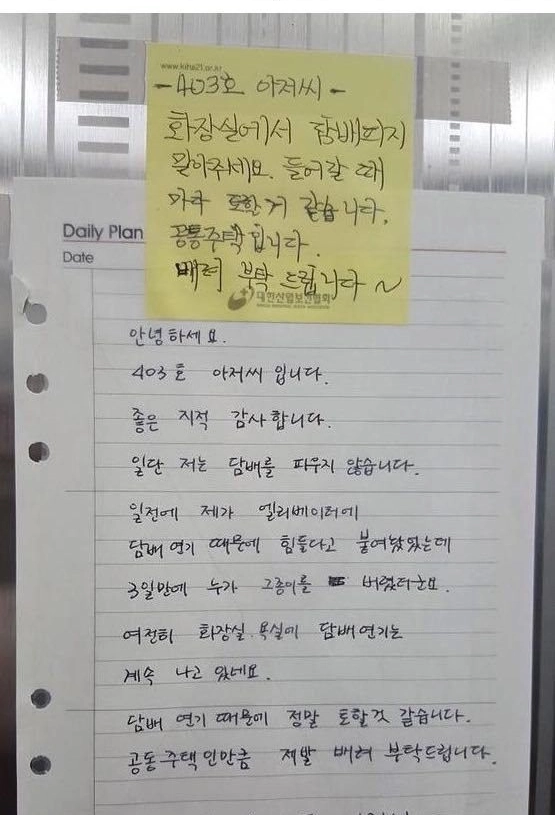 www.kiha21.or.kr
-403호 아저씨-
화장실에서 담배피지
말아주세요. 들어갈 때
마다 토할거 같습니다.
공동주택입니다.
배려 부탁 드립니다~
대한산업보건협회
Daily Plan
Date
안녕하세요.
403호 아저씨 입니다.
좋은 지적 감사합니다.
일단 저는 담배를 피우지 않습니다.
일전에 제가 엘리베이터에
담배 연기 때문에 힘들다고 붙여놨었는데
3일만에 누가 그종이를 버렸더군요.
여전히 화장실.욕실에 담배연기는
계속 나고 있네요.
담배 연기 때문에 정말 토할것 같습니다.
공동 주택인만큼 제발 배려 부탁드립니다.